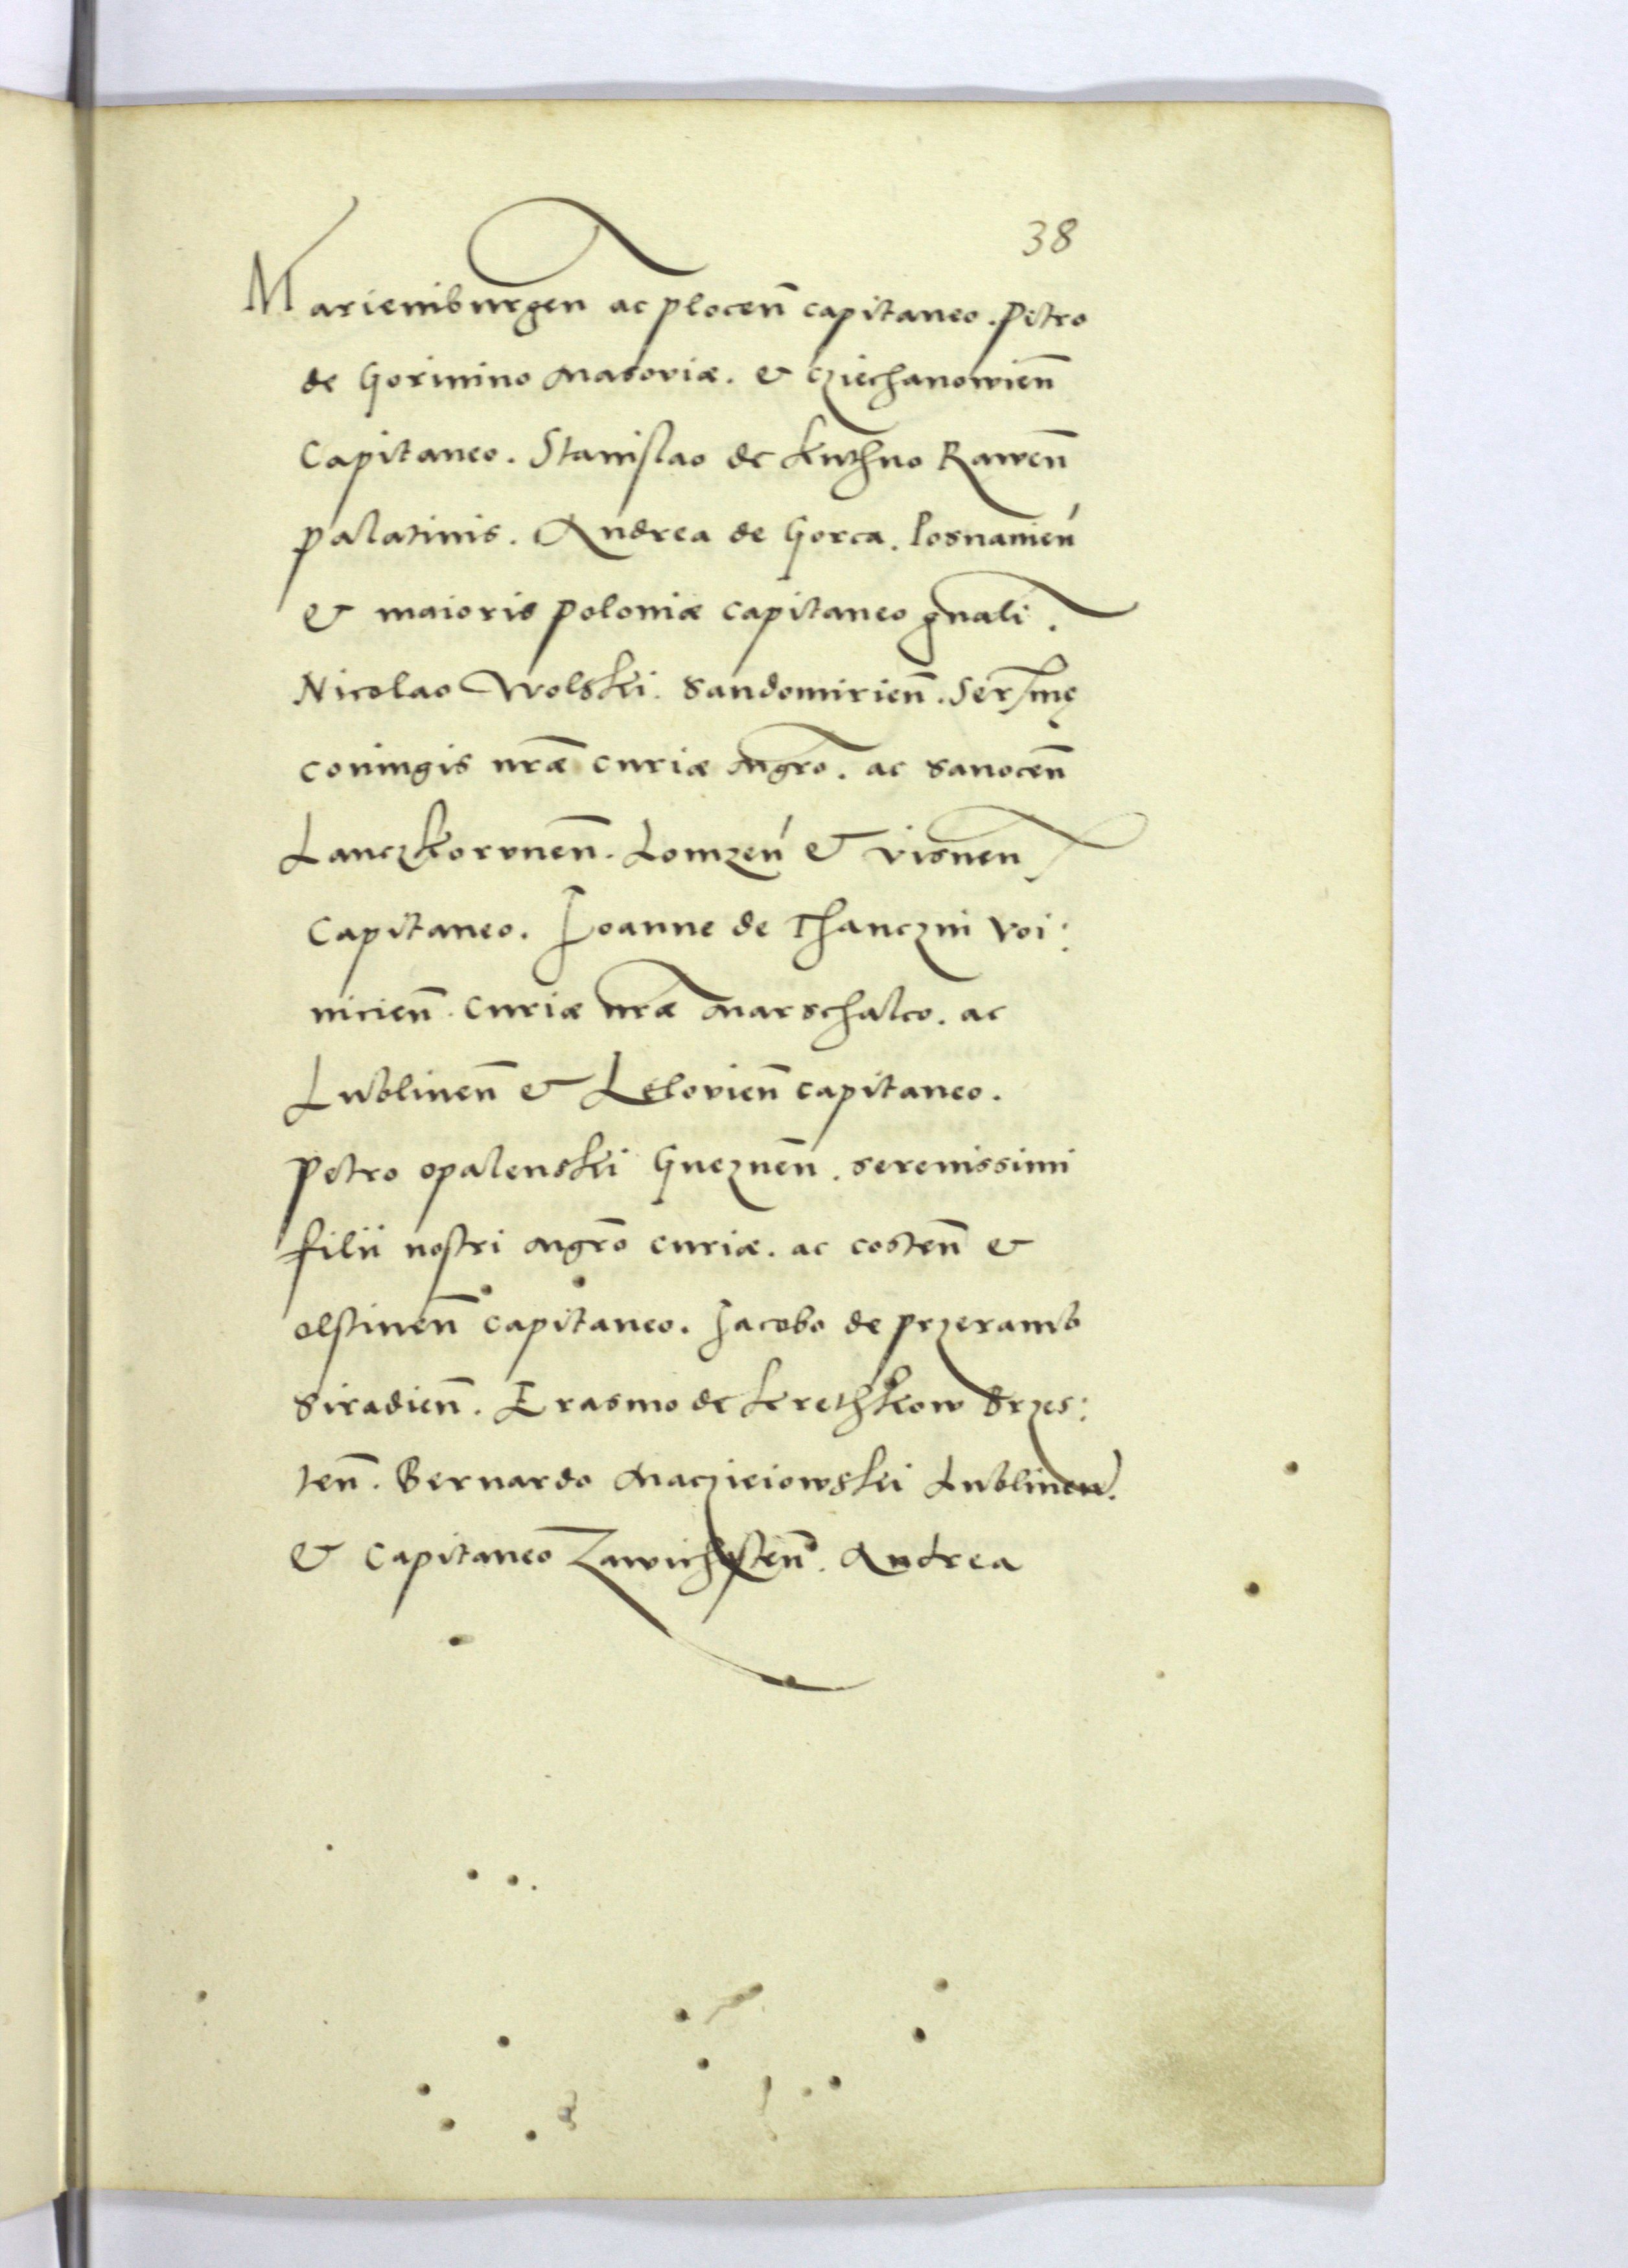 38
Marienburgen ac plocen̄ capitaneo. Petro
de Gorimino Masoviæ. & Cziechanowien̄
Capitaneo. Stanislao de Kuthno Rawen̄
palatinis. Andrea de Gorca. Posnanień
& maioris Poloniæ capitaneo gnali.
Nicolao Wolski. Sandomirien̄. Serꝰmę
coniugis nrāe curiæ mgrō. ac Sanocen̄
Lanczkorunen̄. Lomzeń & Visnen
Capitaneo. Ioanne de Thanczin Voi:
nicien̄. Curiæ nrāe Marschalco. ac
Lublinen̄ & Lelovien̄ capitaneo.
Petro Opalenski Gneznen̄. serenissimi
filii nostri mgrō curiæ. ac costen̄ &
olstinen̄ capitaneo. Jacobo de przeramb
Siradien̄. Erasmo de Krethkow Brzes:
ten̄. Bernardo Macziejowski Lublinen̄.
& Capitaneo Zawichosten̄. Andrea